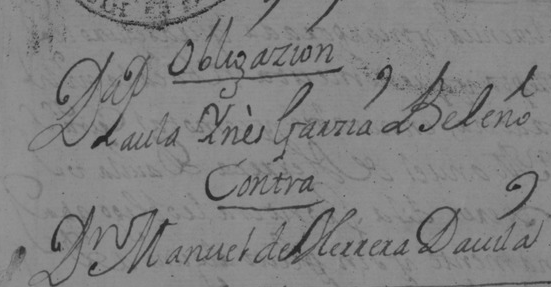 Obligazion
Dª Paula Ynès Garzia d Beleño
Contra
Dn Manuel de Herrera Davila